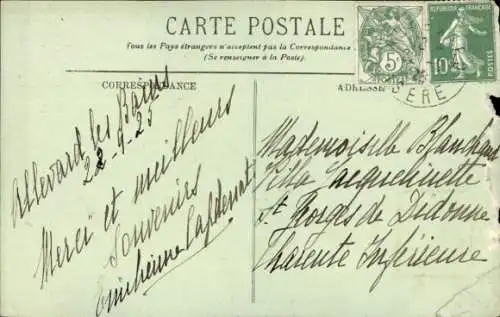 CARTE POSTALE
Tous les Pays étrangers n'acceptent pas la Correspondance
(Se renseigner à la Poste).
CORRESPONDANCE
ADRESSE
REPUBLIQUE FRANÇAISE
10
POSTES
5
ERE
Allevard les Bains
22-9-25
Merci et meilleurs
souvenirs
Mademoiselle Blanchard
Villa Jacquelinette
St Georges de Didonne
Charente Inférieure